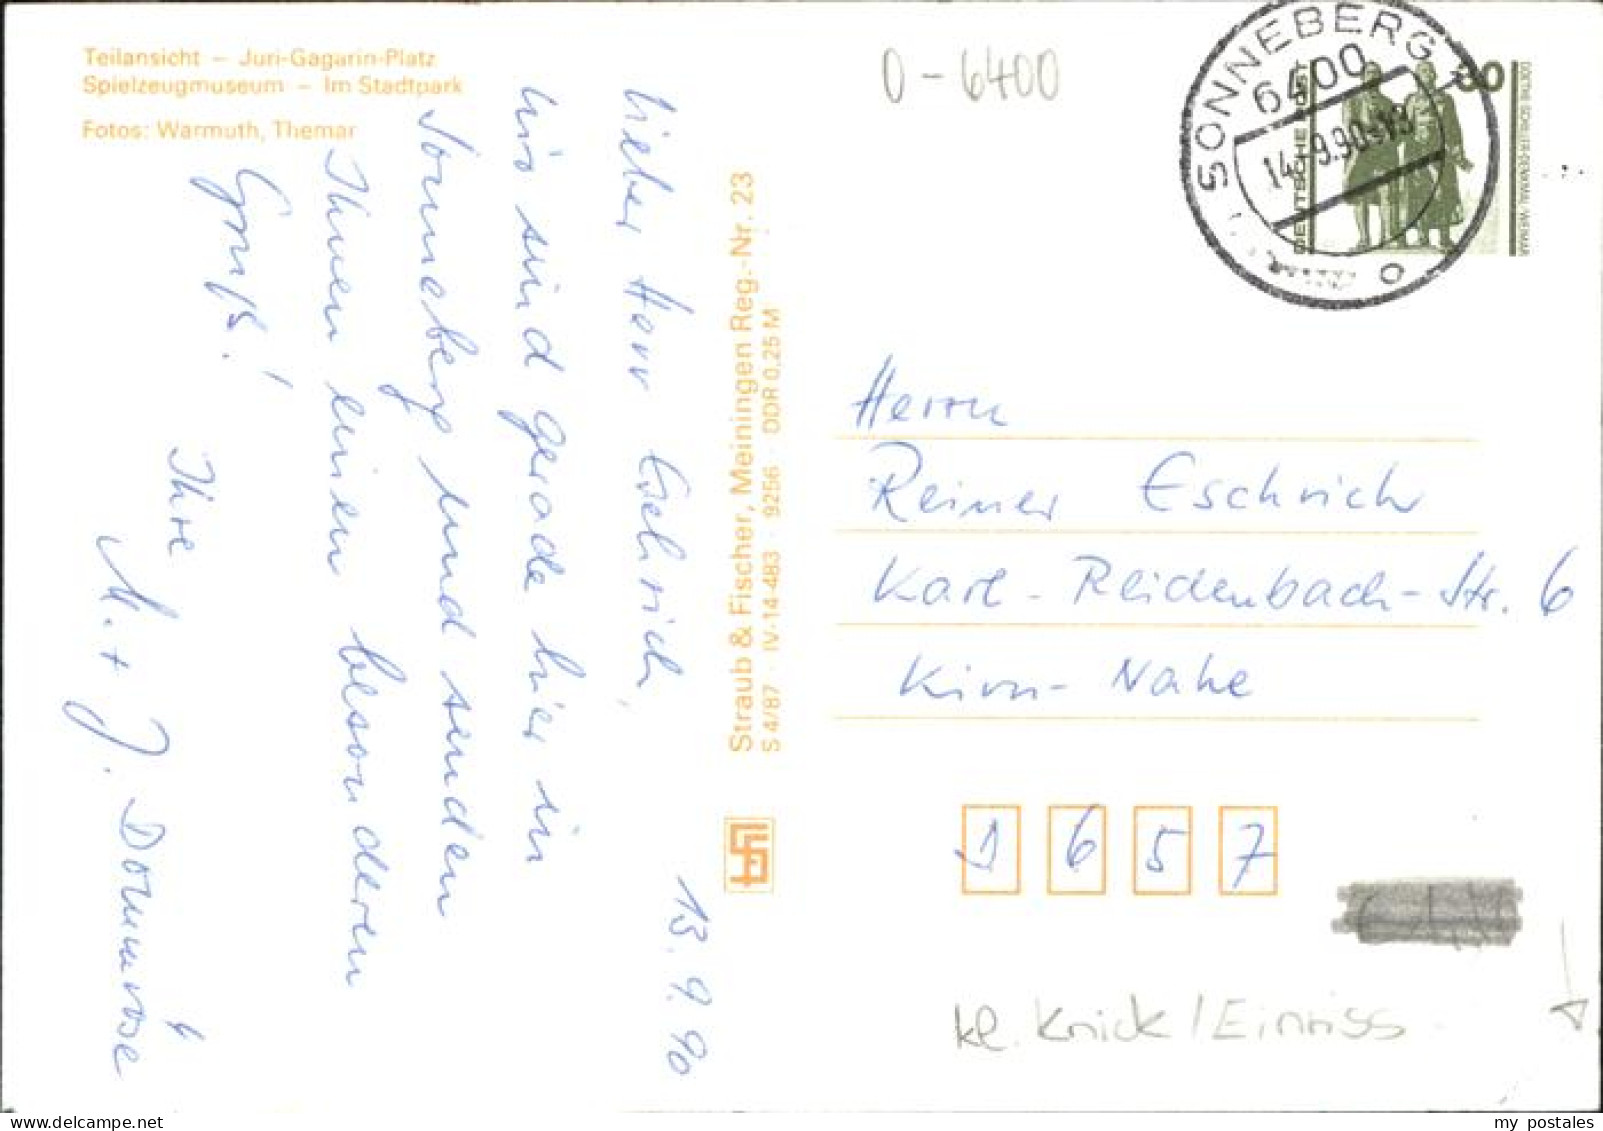 Teilansicht – Juri-Gagarin-Platz
Spielzeugmuseum – Im Stadtpark
Fotos: Warmuth, Themar
13. 9. 90
Lieber Herr Eschrich,
wir sind gerade hier in
Sonneberg und senden
Ihnen einen besonderen
Gruß!
Ihre
M. + J. Dornrose
Straub & Fischer, Meiningen Reg.-Nr. 23
S 4/87 · IV-14-483 · 9256 · DDR 0,25 M
0-6400
SONNEBERG 1
6400
14.-9.90
30
DEUTSCHE POST
GOETHE-SCHILLER-DENKMAL WEIMAR
Herrn
Reiner Eschrich
Karl-Reidenbach-Str. 6
Kirn-Nahe
1 6 5 7
kl. Knick/Einriss
my postales